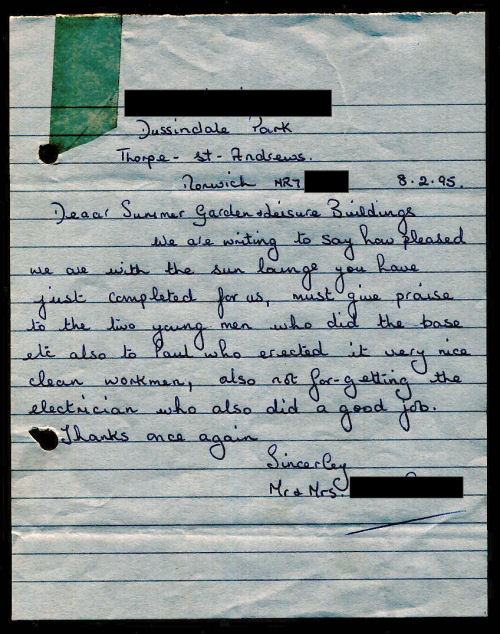 Dussindale Park
Thorpe - st - Andrews.
Norwich NR7 8.2.95.
Deaar Summer Garden & Leisure Buildings
We are writing to say how pleased
we are with the sun lounge you have
just completed for us, must give praise
to the two young men who did the base
etc also to Paul who erected it very nice
clean workmen, also not for-getting the
electrician who also did a good job.
Thanks once again
Sincerley
Mr & Mrs.